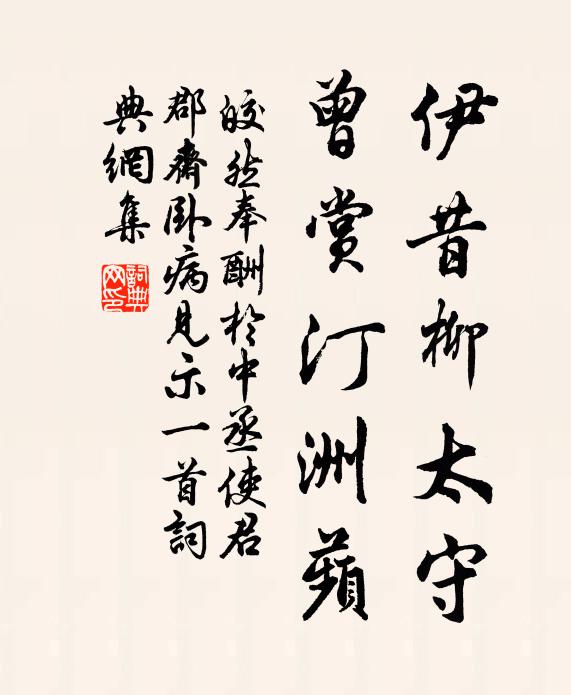 伊昔柳太守
曾賞汀洲蘋
皎然奉酬於中丞使君
郡齋臥病見示一首詞
典網集
詞典网印